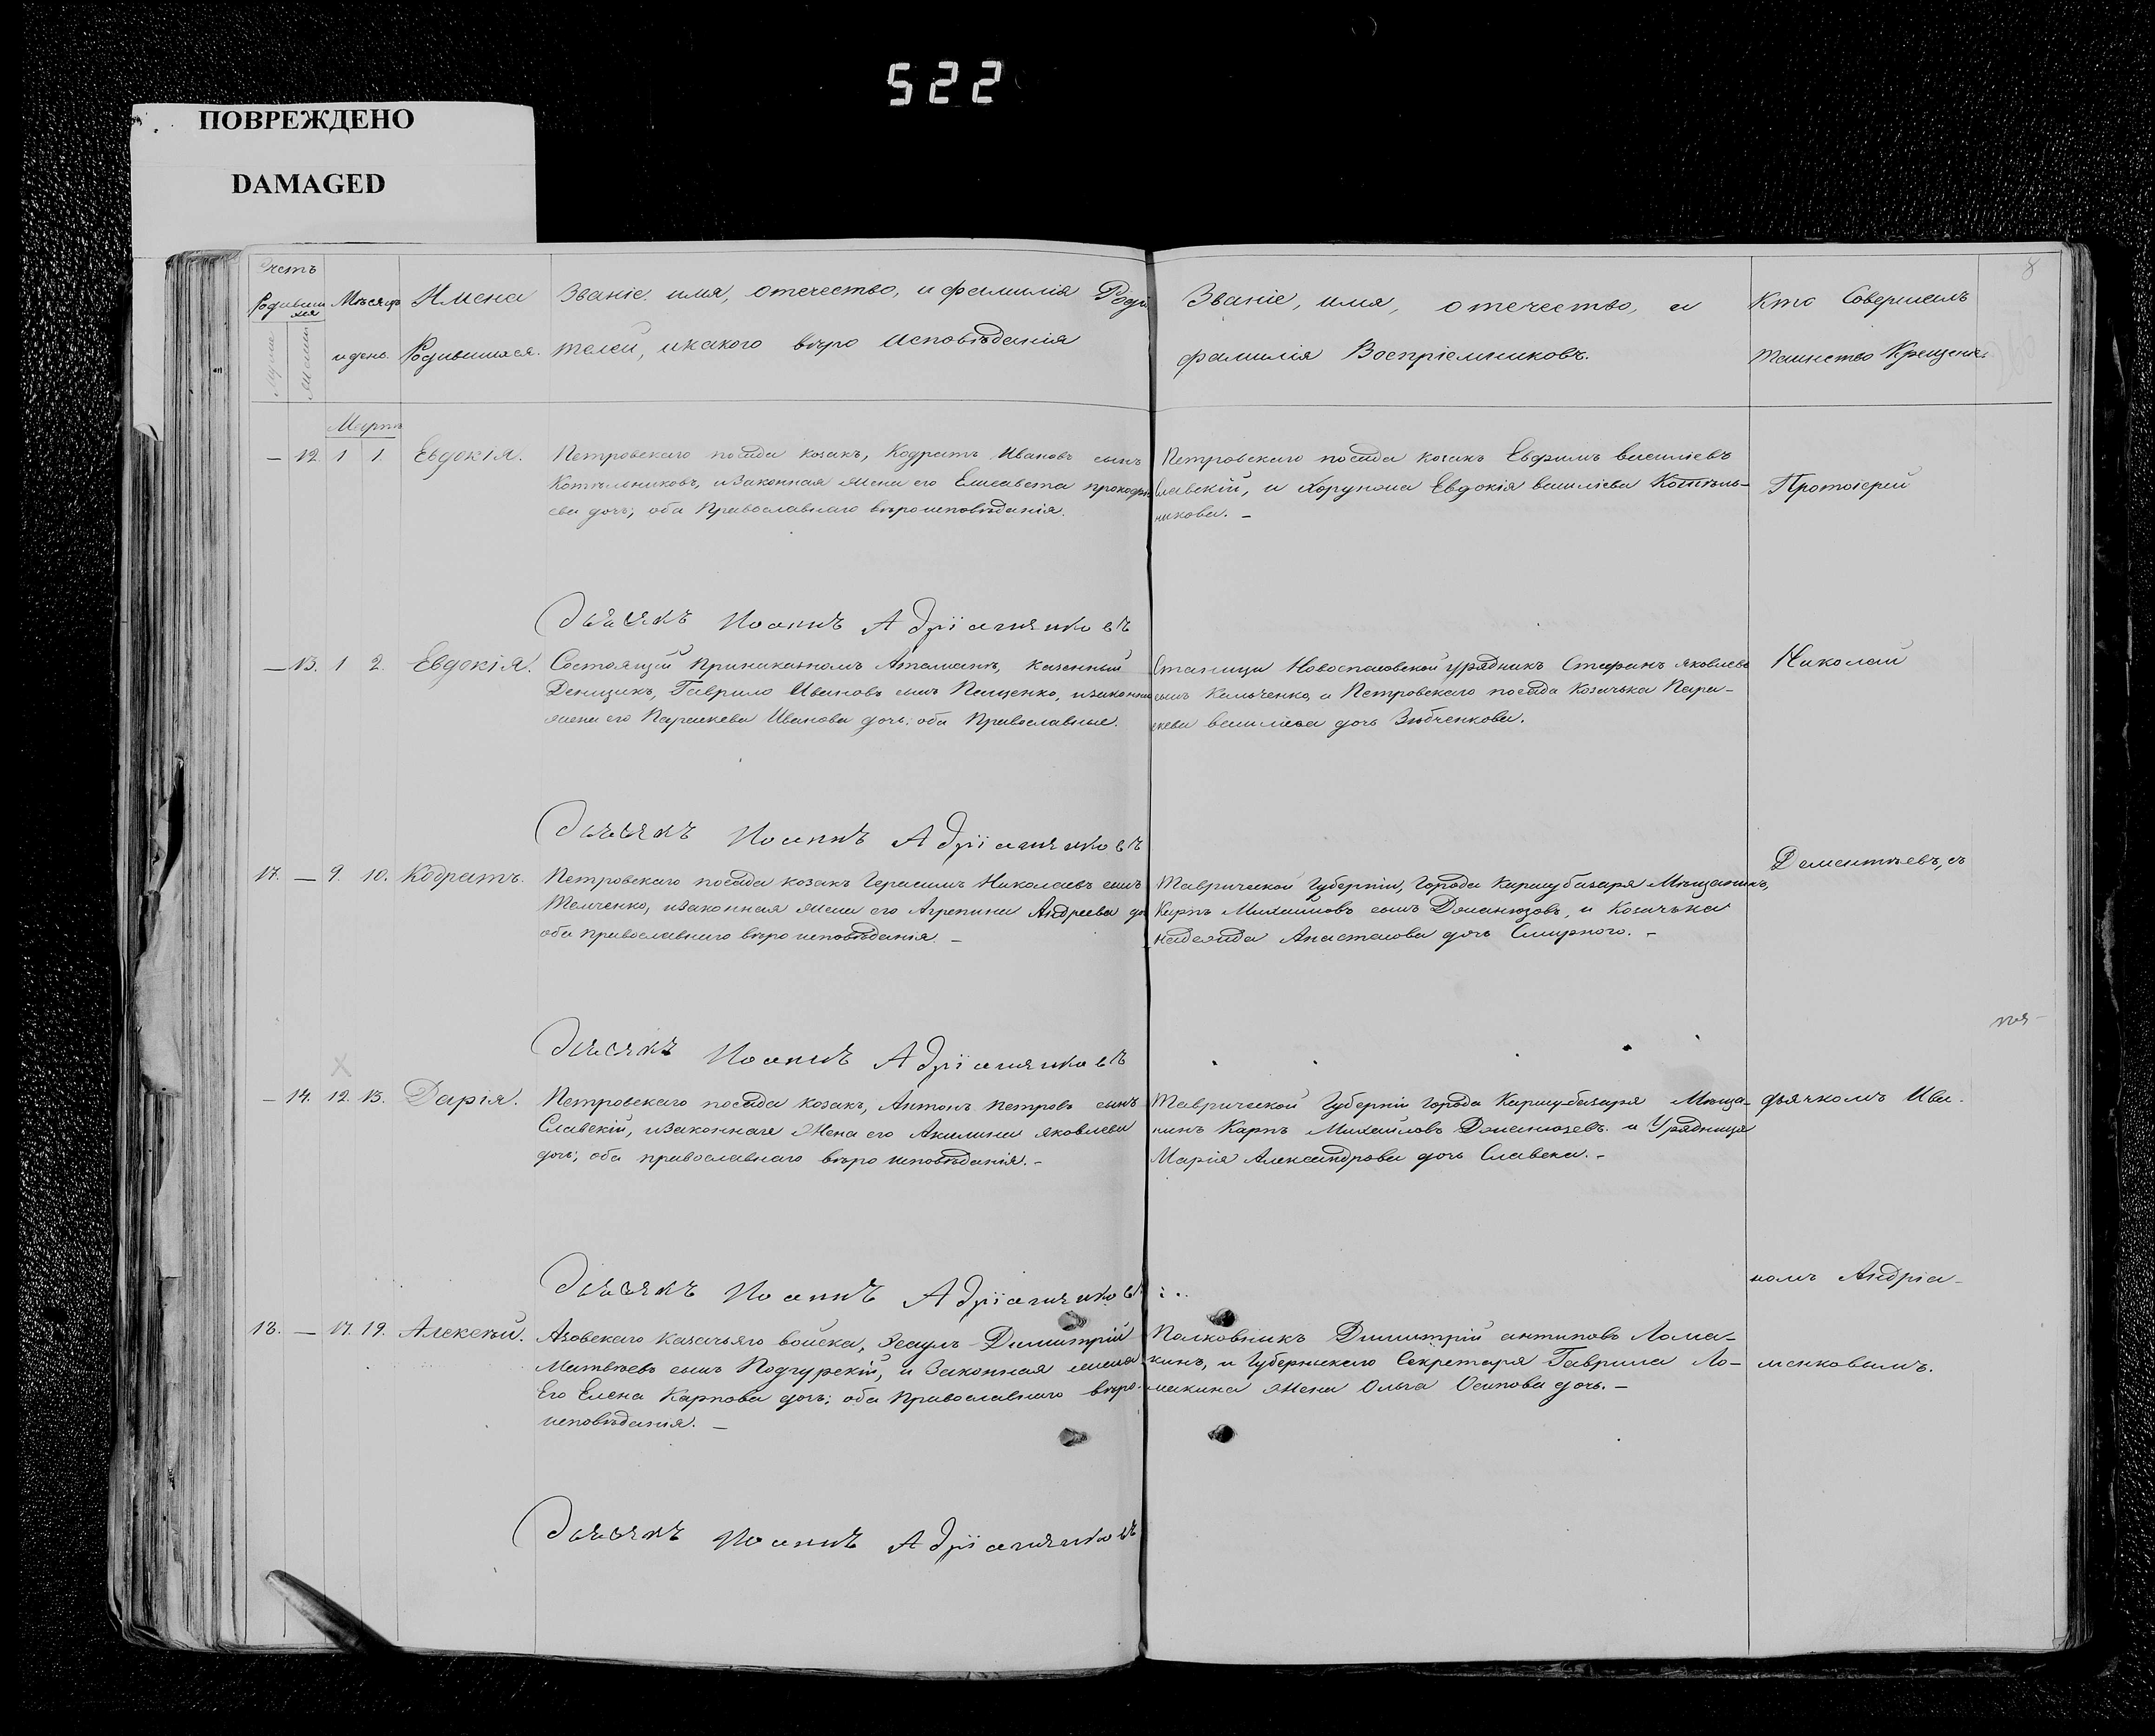 522
ПОВРЕЖДЕНО
DAMAGED
8
Счетъ
Родивших
ся
Мѣсяцъ
и день.
Имена
Родившихся.
Званіе. имя, отечество, и фамилія Роди
телей, и какого вѣро исповѣданія
Званіе, имя, отечество, и
фамилія Воспріемниковъ.
Кто Совершалъ
таинство Крещенія
Мартъ
— 12. 1 1. Евдокія.
Петровскаго посада козакъ, Кодратъ Ивановъ сынъ
Котельниковъ, и Законная жена его Елисавета прокофь
ева дочь; оба Православнаго вѣроисповѣданія.
Петровскаго посада козакъ Евфимъ василіевъ
Славскій, и Хорунжиа Евдокія василіева Котель-
никова. —
Протоіерей
Дьячекъ Иоаннъ Адріаненковъ
— 13. 1 2. Евдокія.
Состоящій при наказномъ Атаманѣ, казенный
Денщикъ, Гаврило Ивановъ сынъ Пащенко, и законная
жена его Параскева Иванова дочь; оба Православные.
Станицы Новоспасовской урядникъ Стефанъ яковлевъ
сынъ Кальченко, и Петровскаго посада Козачька Пара-
скева василіева дочь Зюбченкова.
Николай
Дьячекъ Иоаннъ Адріаненковъ
17. — 9. 10. Кодратъ.
Петровскаго посада козакъ Герасимъ Николаевъ сынъ
Темченко, и законная жена его Агрепина Андреева до
оба православнаго вѣро исповѣданія. —
Таврической Губерніи, города Карасу базара Мѣщанинъ,
Карпъ Михайловъ сынъ Джанюзовъ, и Козачька
надежда Анастасова дочь Смирного. —
Дементьевъ, съ
Дьячекъ Иоаннъ Адріаненковъ
— 14. 12. 13. Дарія.
Петровскаго посада козакъ, Антонъ петровъ сынъ
Славскій, и Законная Жена его Акилина яковлева
дочь; оба православнаго вѣро исповѣданія. —
Таврической Губерніи города Карасу-базара Мѣща-
нинъ Карпъ Михайловъ Джанюзовъ. и Урядница
Марія Александрова дочь Славска. —
дьячкомъ Ива-
Дьячекъ Иоаннъ Адріаненковъ
номъ Андріа-
18. — 17. 19. Алексѣй.
Азовскаго казачьяго войска, Эсаулъ Димитрій
Матвѣевъ сынъ Подгурскій, и Законная жена
Его Елена Карпова дочь; оба Православнаго вѣро-
исповѣданія. —
Полковникъ Димитрій антиповъ Лома-
кинъ, и Губернскаго Секретаря Гаврила Ло-
макина жена Ольга Осипова дочь. —
ненковымъ.
Дьячекъ Иоаннъ Адріаненковъ